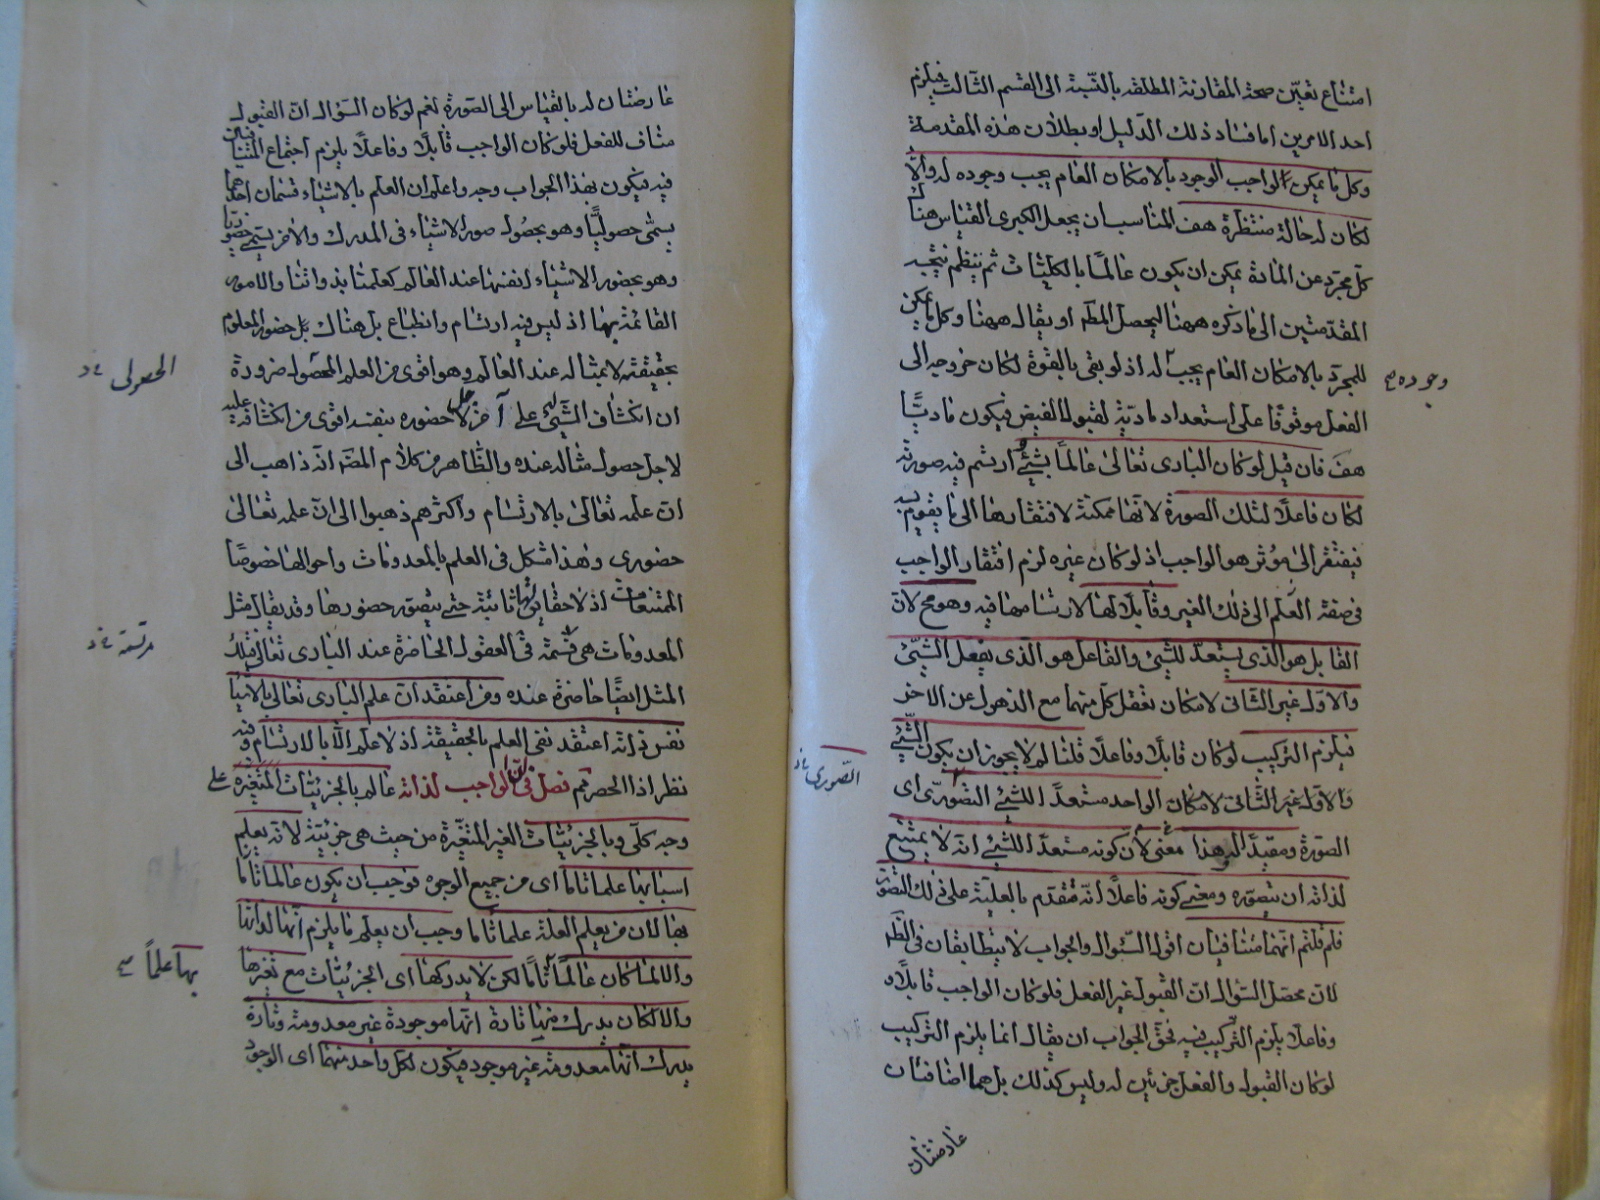 امتناع تعيّن صحة المقارنة المطلقة بالنسبة الى القسم الثالث فيلزم
احد الامرين اما فساد ذلك الدليل او بطلان هذه المقدمة
وكل ما يمكن للواجب الوجود بالامكان العام يجب وجوده له والّا
لكان له حالة منتظرة هف المناسب ان يجعل الكبرى القياس هناك
كلّ مجرّد عن المادة يمكن ان يكون عالمًا بالكليّات ثم ينظم نتيجة
المقدّمتين الى ما ذكره ههنا ليحصل المط او يقال ههنا وكل ما يمكن
للمجرّد بالامكان العام يجب له اذ لو بقى بالقوة لكان خروجه الى
وجوده
الفعل موقوفًا على استعداد مادّية لقبولها الفيض فيكون ماديّا
هف فان قيل لو كان البارى تعالى عالمًا بشئ ارتسم فيه صورته
لكان فاعلًا لتلك الصورة لانّها ممكنة لافتقارها الى ما يقوم به
فيفتقر الى مؤثر هو الواجب اذ لو كان غيره لزم افتقار الواجب
فى صفة العلم الى ذلك الغير وقابلًا لها لارتسامها فيه وهو مح لان
القابل هو الذى يستعدّ للشئ والفاعل هو الذى يفعل الشئ
والاول غير الثانى لامكان تعقل كلّ منهما مع الذهول عن الاخر
فيلزم التركيب لو كان قابلًا وفاعلًا قلنا لم لا يجوز ان يكون الشئ
والاول غير الثانى لامكان الواحد مستعدًّا للشئ التصورى اى
التصورى
الصورة ومفيدًا له وهذا معنى لان كونه مستعدًّا للشئ انه لا يمتنع
لذاته ان يتصوّره ومعنى كونه فاعلًا انّه مقدم بالعلية على ذلك التصوّر
فلم قلتم انهما متنافيان اقول السّؤال والجواب لا يتطابقان فى الظ
لانّ محصّل السّؤال انّ القبول غير الفعل فلو كان الواجب قابلًا
وفاعلًا يلزم التّركيب فيه فحقّ الجواب ان يقال انما يلزم التركيب
لو كان القبول والفعل جزئين له وليس كذلك بل هما اضافتان
عارضتان
عارضتان له بالقياس الى الصّورة نعم لو كان السّؤال انّ القبول
مناف للفعل فلو كان الواجب قابلًا وفاعلًا يلزم اجتماع المتنافيان
فيه فيكون بهذا الجواب وجه واعلم ان العلم بالاشياء قسمان احدهما
يسمّى حصوليًّا وهو بحصول صور الاشياء فى المدرك والاخر يسمّى حضوريّا
وهو بحضور الاشياء انفسها عند العالم كعلمنا بذواتنا والامور
القائمة بها اذ ليس فيه ارتسام وانطباع بل هناك حضور المعلوم
بحقيقته لا بمثاله عند العالم وهو اقوى من العلم الحصول ضرورة
الحصولى
ان انكشاف الشّئ على آخر لاجل حضوره بنفسه اقوى من انكشافه عليه
لاجل حصول مثاله عنده والظّاهر من كلام المصّ انّه ذاهب الى
انّ علمه تعالى بالارتسام واكثرهم ذهبوا الى انّ علمه تعالى
حضورى وهذا مشكل فى العلم بالمعدومات واحوالها خصوصًا
الممتنعات اذ لا حقايق لها ثابتة حتى يتصوّر حضورها وقد يقال مثل
المعدومات هى قسمة فى العقول الحاضرة عند البارى تعالى فتلك
مرتسمة
المثل ايضًا حاضرة عنده ومن اعتقد انّ علم البارى تعالى بالاشياء
نفس ذاته اعتقد نفى العلم بالحقيقة اذ لا علم الّا بالارتسام وفيه
نظر اذا الحصر مم فصل فى ان الواجب لذاته عالم بالجزئيّات المتغيّرة على
وجه كلّى وبالجزئيّات الغير المتغيّرة من حيث هى جزئيّة لانّه يعلم
اسبابها علما تامّا اى من جميع الوجوه فوجب ان يكون عالما تامّا
بها لان من يعلم العلّة علما تامّا وجب ان يعلم ما يلزم انّها لذاتها
والا لما كان عالمًا تامًّا لكن لا يدركها اى الجزئيّات مع تغيّرها
بها علماً
والا لكان يدرك منها تارة انّها موجودة غير معدومة وتارة
يدرك انّها معدومة غير موجود فيكون لكل واحد منهما اى الوجود